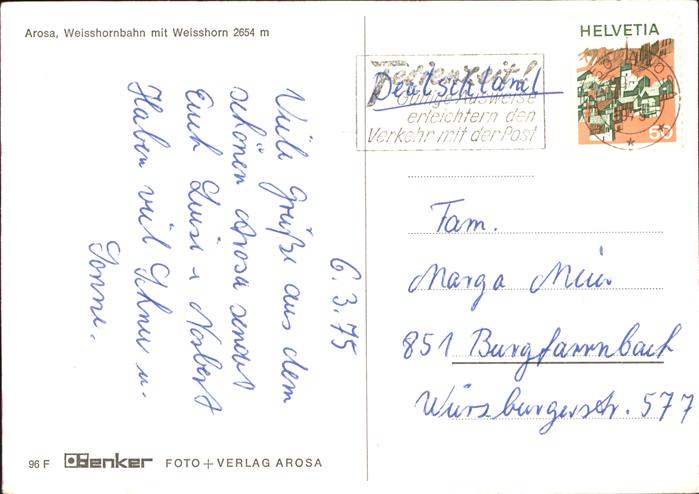 Arosa, Weisshornbahn mit Weisshorn 2654 m
6.3.75
Viele Grüße aus dem
schönen Arosa sendet
Euch Luisi + Norbert
Haben viel Schnee u.
Sonne.
HELVETIA
50
Ferienzeit!
Gültige Ausweise
erleichtern den
Verkehr mit der Post
Deutschland
Fam.
Marga Meier
851 Burgfarrnbach
Würzburgerstr. 577
96 F Benker FOTO + VERLAG AROSA